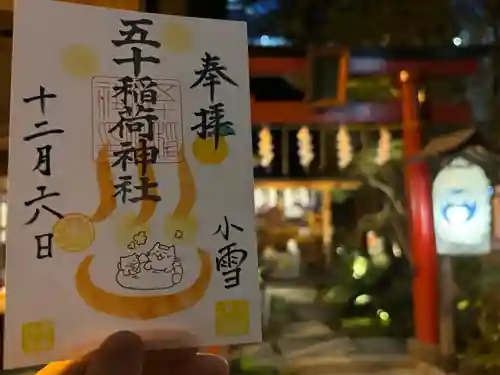 奉拝
五十稲荷神社
小雪
十二月六八日